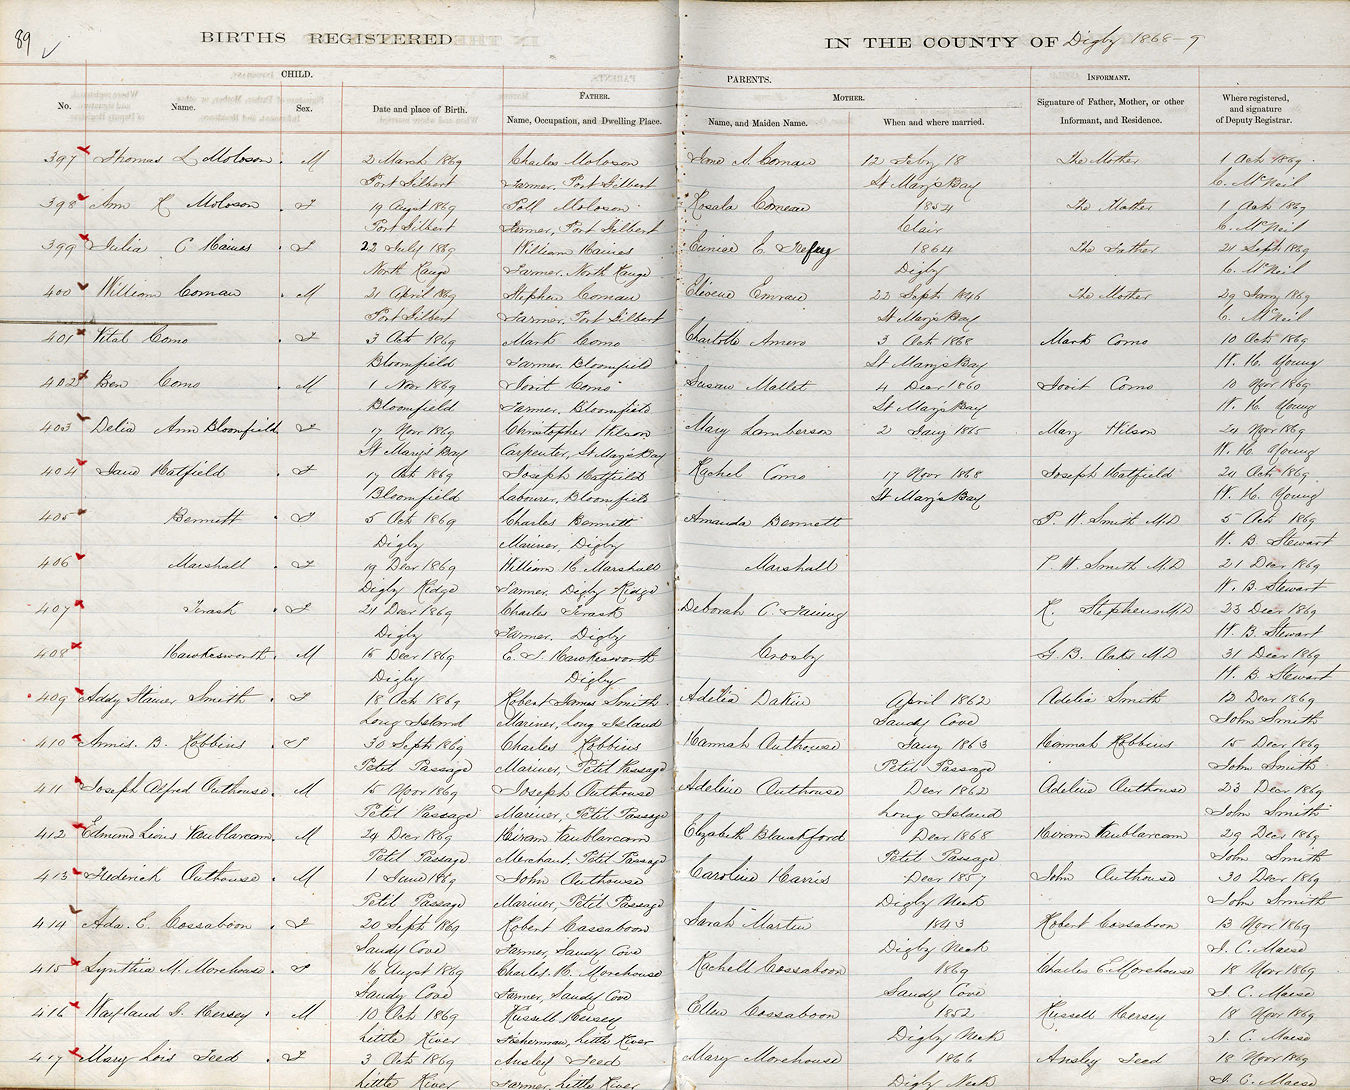 89
BIRTHS REGISTERED IN THE COUNTY OF Digby 1868-9
CHILD. PARENTS. INFORMANT.
FATHER. MOTHER.
No. Name. Sex. Date and place of Birth. Name, Occupation, and Dwelling Place. Name, and Maiden Name. When and where married. Signature of Father, Mother, or other Informant, and Residence. Where registered, and signature of Deputy Registrar.
397 Thomas L Moloson M 2 March 1869 Charles Moloson A. Comau 12 Feby 18 The Mother 1 Oct 1869
Port Gilbert Farmer, Port Gilbert St Mary's Bay C. McNeil
398 Ann H Moloson F 19 Augst 1869 Poll Moloson Rosala Comeau 1854 The Mother 1 Oct 1869
Port Gilbert Farmer, Port Gilbert Clair C. McNeil
399 Julia C Haines F 22 July 1869 William Haines Eunice E. Trefry 1864 The Father 21 Sept 1869
North Range Farmer, North Range Digby C. McNeil
400 William Comau M 21 April 1869 Stephen Comau 22 Sept 1846 The Mother 29 1869
Port Gilbert Farmer, Port Gilbert St Mary's Bay C. McNeil
401 Vital Como F 3 Oct 1869 Mark Como Charlotte Amero 3 Oct 1868 Mark Como 10 Oct 1869
Bloomfield Farmer, Bloomfield St Mary's Bay W. H. Young
402 Ben Como M 1 Nov 1869 Jovit Como Susan Mallet 4 Decr 1860 Jovit Como 10 Nov 1869
Bloomfield Farmer, Bloomfield St Mary's Bay W. H. Young
403 Delia Ann Bloomfield F 17 Nov 1869 Christopher Wilson Mary Lamberson 2 Jany 1865 Mary Wilson 24 Nov 1869
St Mary's Bay Carpenter, St Mary's Bay W. H. Young
404 Jane Hatfield F 17 Oct 1869 Joseph Hatfield Rachel Como 17 Nov 1868 Joseph Hatfield 20 Oct 1869
Bloomfield Labourer, Bloomfield St Mary's Bay W. H. Young
405 Bennett F 5 Oct 1869 Charles Bennett Amanda Bennett P. W. Smith M.D 5 Oct 1869
Digby Mariner, Digby W. B. Stewart
406 Marshall F 19 Decr 1869 William H. Marshall Marshall P. W. Smith M.D 21 Decr 1869
Digby Ridge Farmer, Digby Ridge W. B. Stewart
407 Terask F 21 Decr 1869 Charles Terask Deborah C. R. Stephens M.D 23 Decr 1869
Digby Farmer, Digby W. B. Stewart
408 Hawkesworth M 15 Decr 1869 E. S. Hawkesworth Crosby G. B. Oaks M.D 31 Decr 1869
Digby Digby W. B. Stewart
409 Addy Stainer Smith F 18 Oct 1869 Robert James Smith Adelia Dakin April 1862 Adelia Smith 12 Decr 1869
Long Island Mariner, Long Island Sandy Cove John Smith
410 Annis. B. Robbins F 30 Sept 1869 Charles Robbins Hannah Outhouse Jany 1863 Hannah Robbins 15 Decr 1869
Petit Passage Mariner, Petit Passage Petit Passage John Smith
411 Joseph Alfred Outhouse M 15 Nov 1869 Joseph Outhouse Adeline Outhouse Decr 1862 Adeline Outhouse 23 Decr 1869
Petit Passage Mariner, Petit Passage Long Island John Smith
412 Edmund Lions Vanblarcom M 24 Decr 1869 Hiram Vanblarcom Elizabeth Blanckford Decr 1868 Hiram Vanblarcom 29 Decr 1869
Petit Passage Merchant, Petit Passage Petit Passage John Smith
413 Frederick Outhouse M 1 June 1869 John Outhouse Caroline Harris Decr 1857 John Outhouse 30 Decr 1869
Petit Passage Mariner, Petit Passage Digby Neck John Smith
414 Ada. E. Cossaboon F 20 Sept 1869 Robert Cassaboon Sarah Martin 1843 Robert Cossaboon 13 Nov 1869
Sandy Cove Farmer, Sandy Cove Digby Neck J. C. Morse
415 Synthia M. Morehouse F 16 Augst 1869 Charles. H. Morehouse Rachell Cossaboon 1869 Charles E. Morehouse 18 Nov 1869
Sandy Cove Farmer, Sandy Cove Sandy Cove J. C. Morse
416 Wayland G. Hersey M 10 Oct 1869 Russell Hersey Ellen Cossaboon 1852 Russell Hersey 18 Nov 1869
Little River Fisherman, Little River Digby Neck J. C. Morse
417 Mary Lois Teed F 3 Oct 1869 Ansley Teed Mary Morehouse 1866 Ansley Teed 18 Nov 1869
Little River Farmer, Little River Digby Neck J. C. Morse